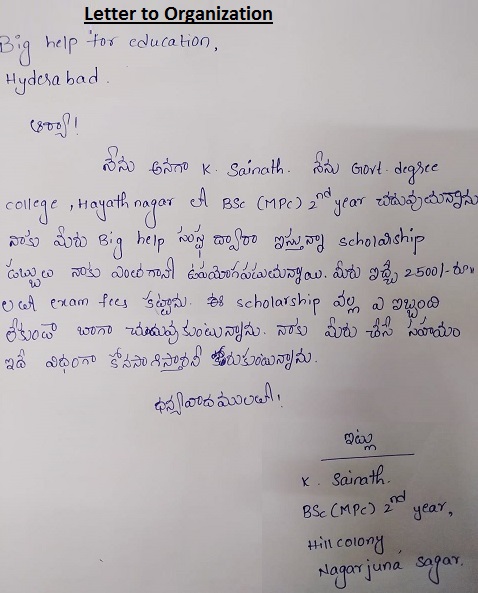 Letter to Organization
Big help for education,
Hyderabad.
ఆర్యా!
నేను అనగా K. Sainath. నేను Govt. degree
college, Hayathnagar లో BSc (MPC) 2nd year చదువుచున్నాను
నాకు మీరు Big help సంస్థ ద్వారా ఇస్తున్నా scholarship
డబ్బులు నాకు ఎంతగానో ఉపయోగపడుచున్నాయి. మీరు ఇచ్చే 2500/- రూ"
లతో exam fees కట్టాను. ఈ scholarship వల్ల ఏ ఇబ్బంది
లేకుండా బాగా చదువుకుంటున్నాను. నాకు మీరు చేసే సహాయం
ఇదే విధంగా కోనసాగిస్తారని కోరుకుంటున్నాను.
ధన్యవాదములతో!
ఇట్లు
K. Sainath.
BSc (MPC) 2nd year,
Hill colony,
Nagarjuna sagar.